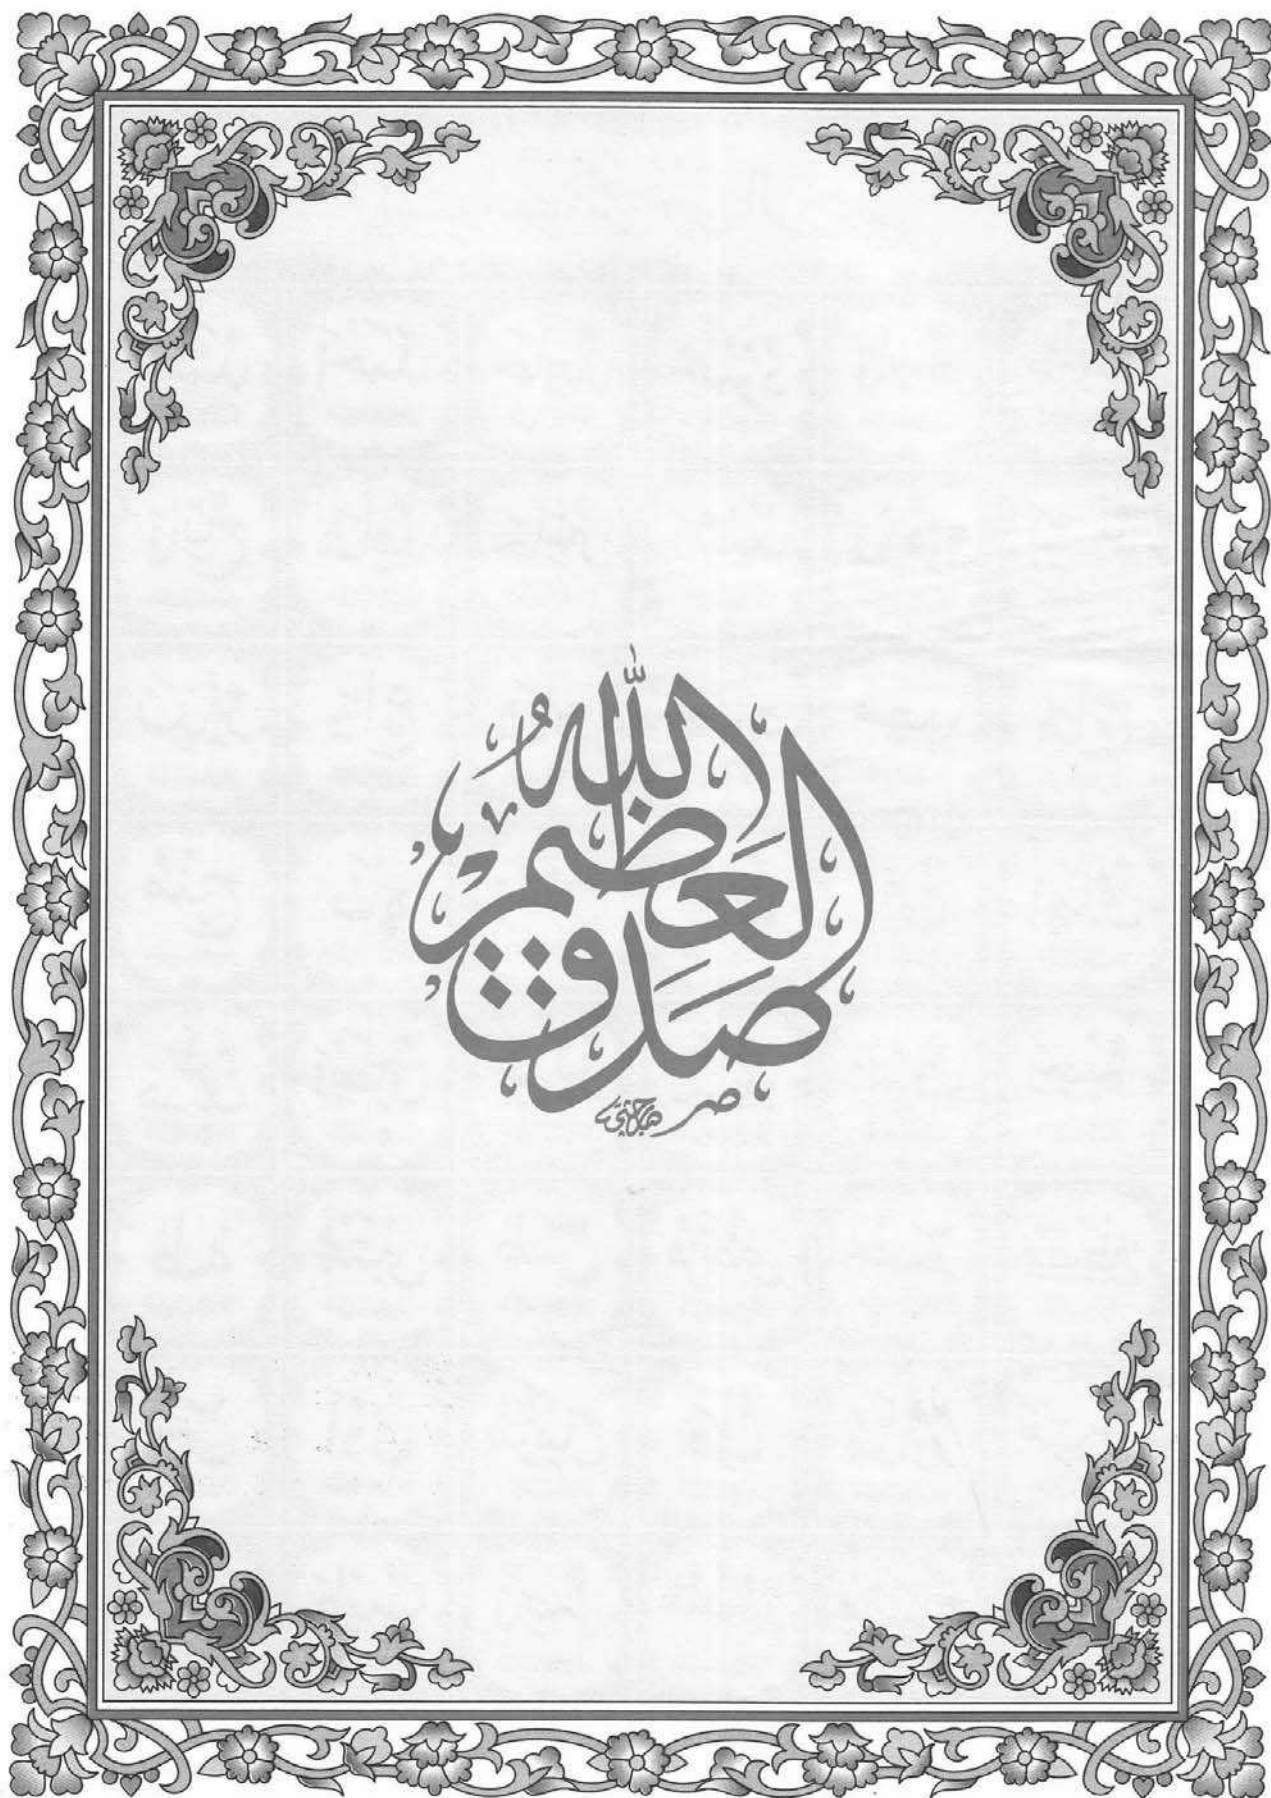 صَدَقَ اللّٰهُ العَظيم